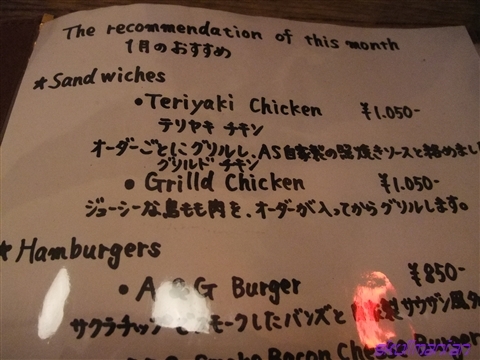 The recommendation of this month
1月のおすすめ
★Sandwiches
• Teriyaki Chicken ¥1.050-
テリヤキ チキン
オーダーごとにグリルし、AS自家製の照焼きソースと絡めました
グリルド チキン
• Grilld Chicken ¥1.050-
ジューシーな鳥もも肉を、オーダーが入ってからグリルします。
★Hamburgers
• A & G Burger ¥850-
サクラチップ モークしたバンズと 製 サウザン風
Smoke Bacon Cheese Burger